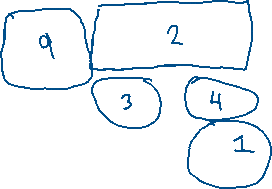 9 2
3 4
1